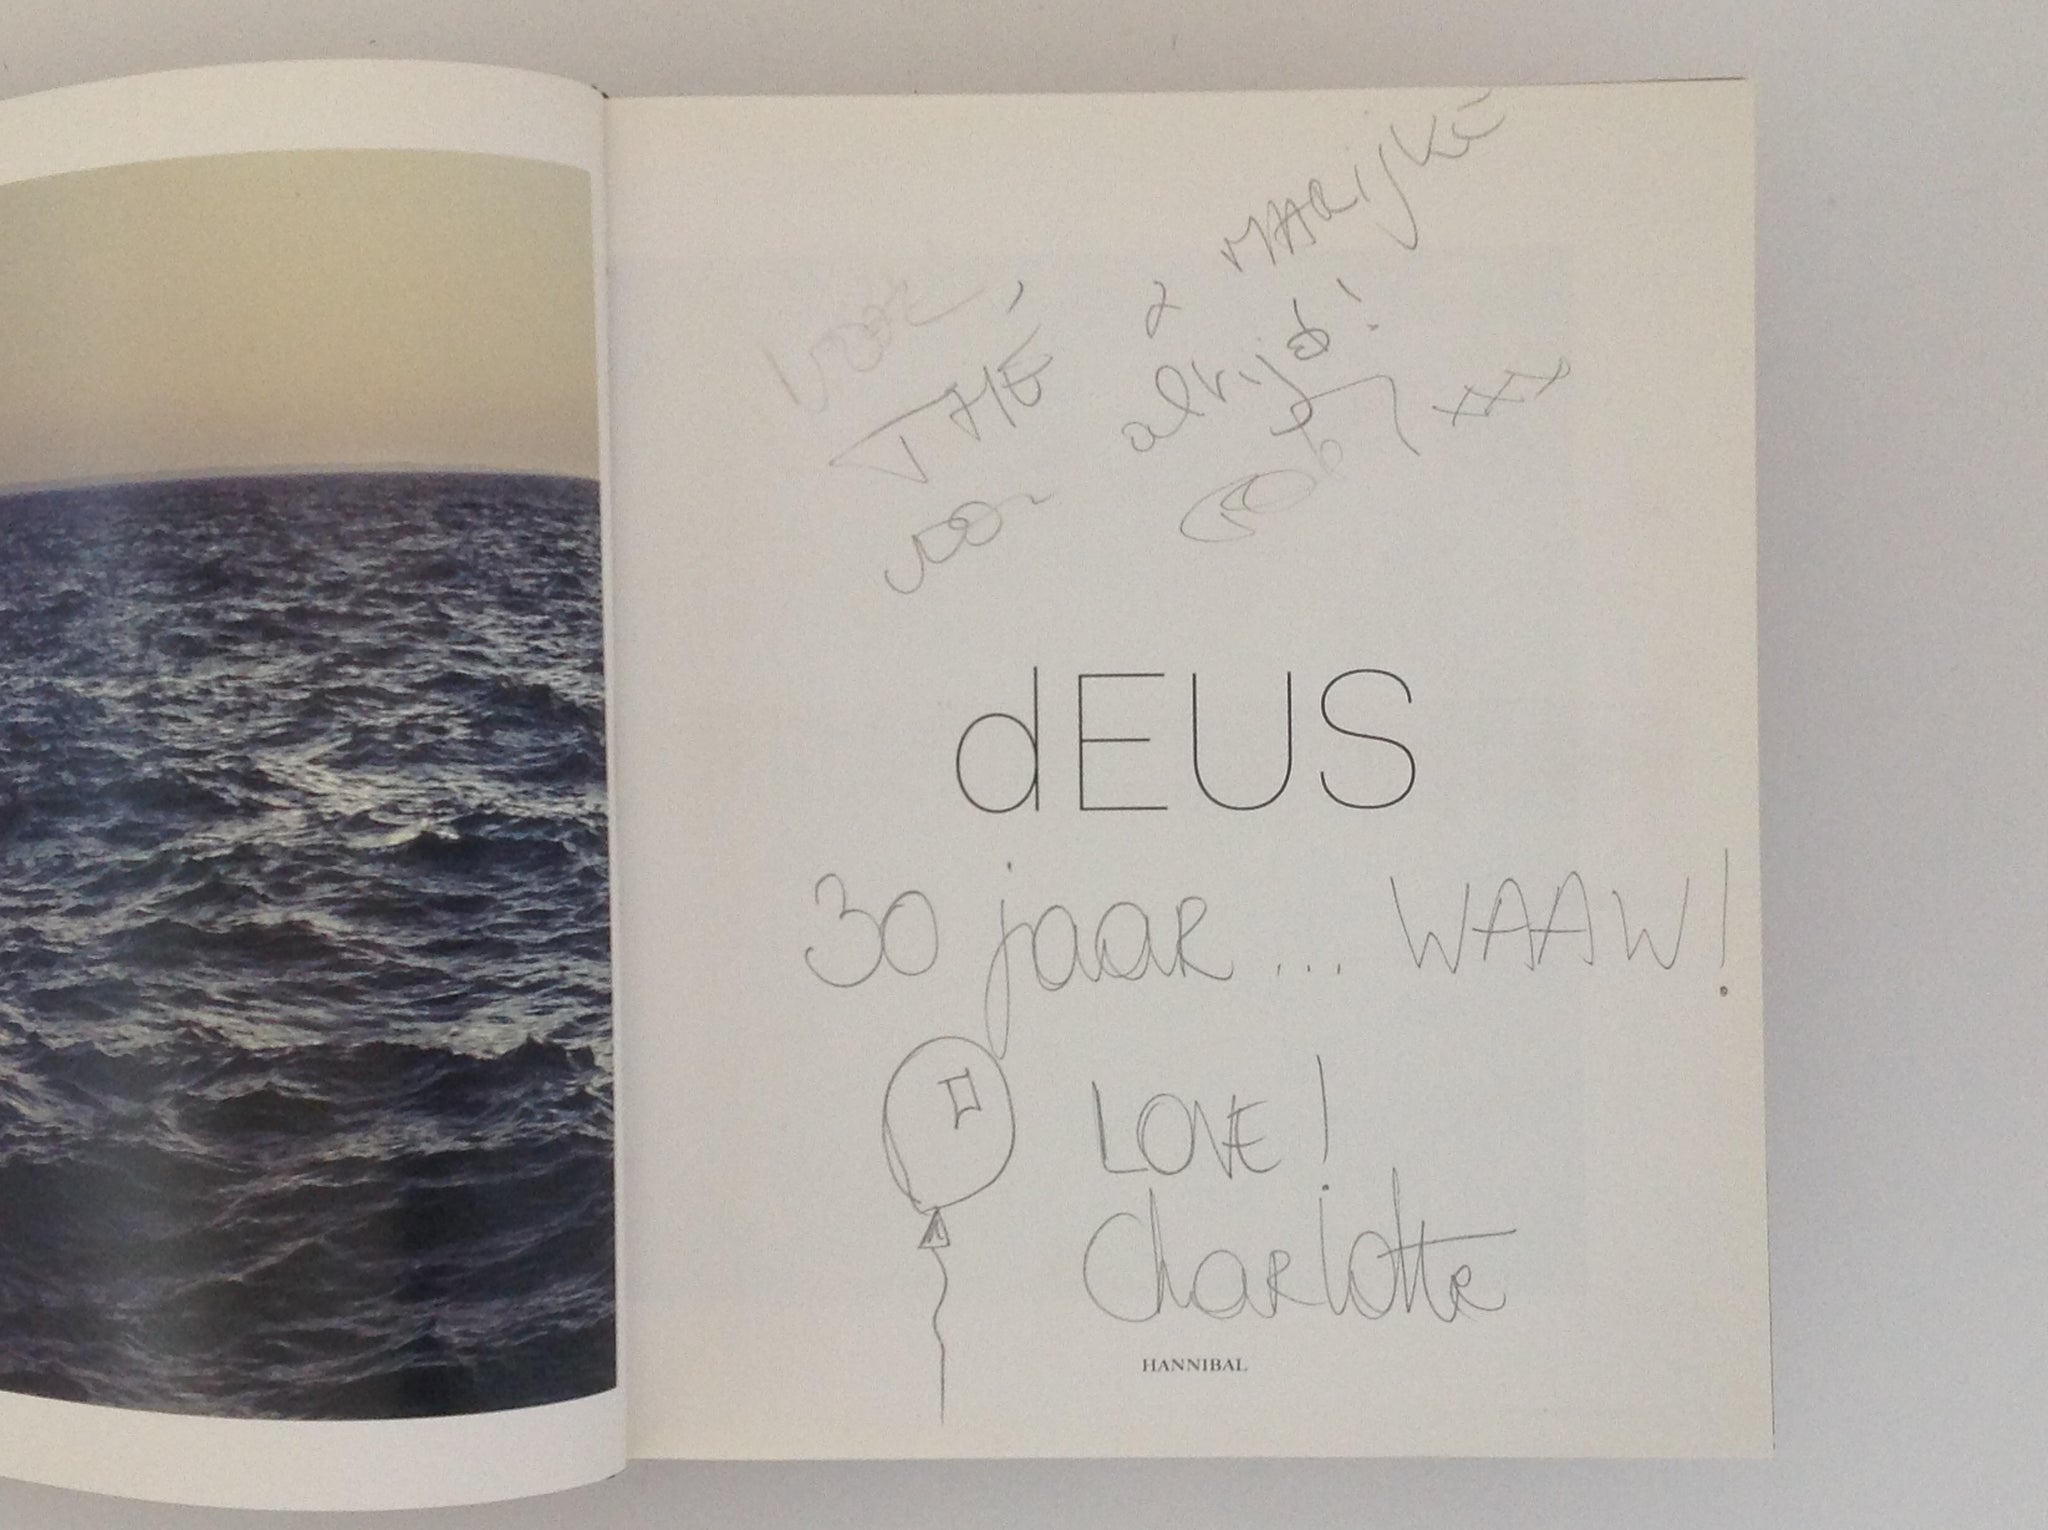 voor
THÉ & MARIJKE
voor altijd!
xxx
dEUS
30 jaar... WAAW!
LOVE!
Charlotte
HANNIBAL